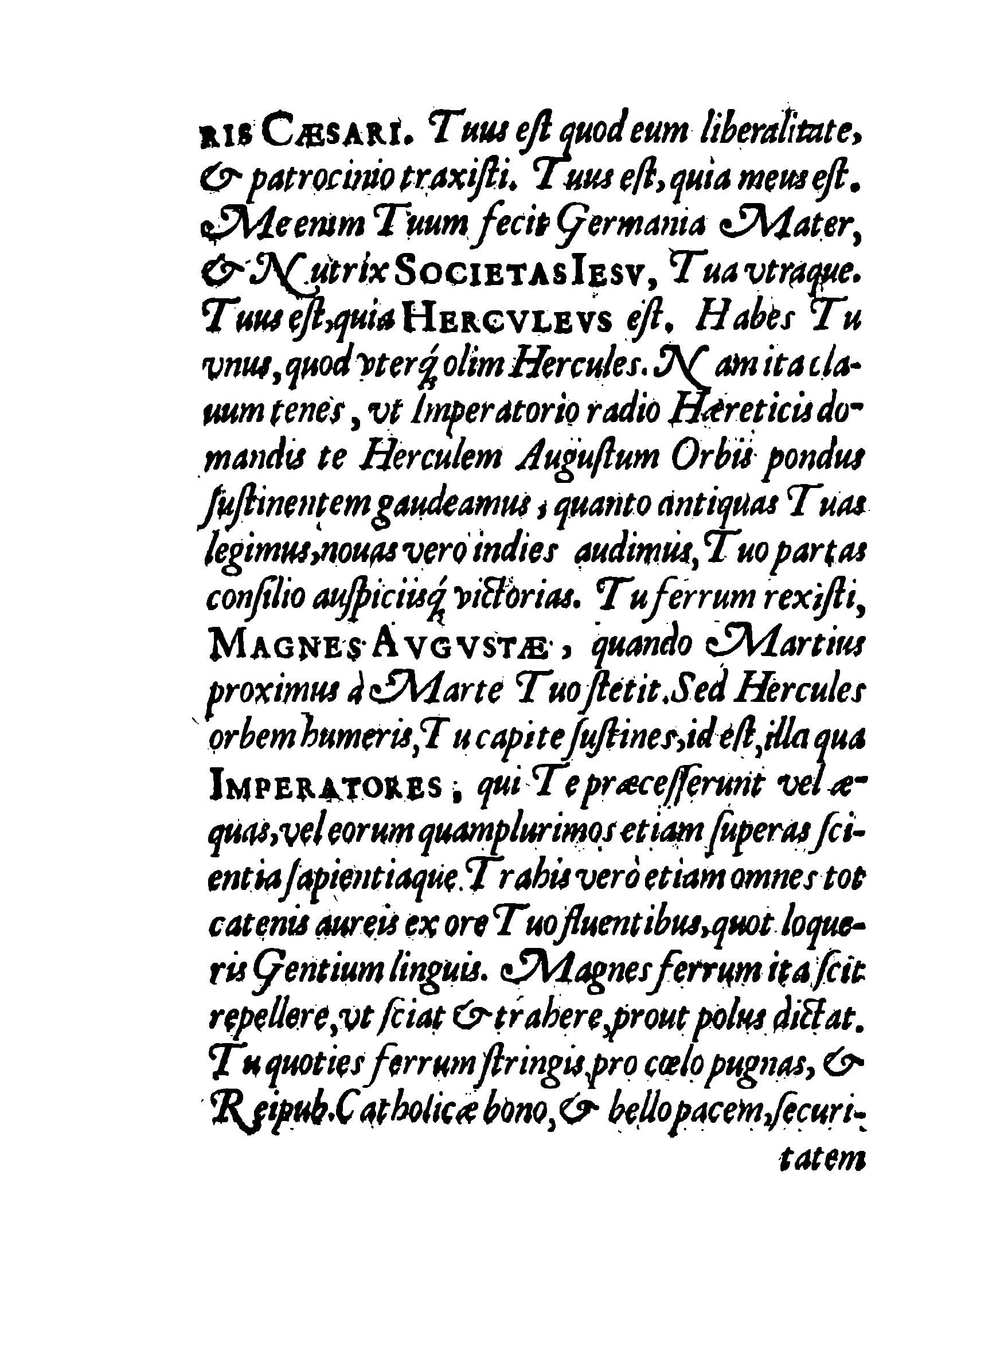 RIS CÆSARI. Tuus eſt quod eum liberalitate,
& patrocinio traxiſti. Tuus eſt, quia meus eſt.
Me enim Tuum fecit Germania Mater,
& Nutrix SOCIETAS IESV, Tua vtraque.
Tuus eſt, quia HERCVLEVS eſt. Habes Tu
vnus, quod vterq́; olim Hercules. Nam ita cla-
uum tenes, vt Imperatorio radio Hæreticis do-
mandis te Herculem Auguſtum Orbis pondus
ſuſtinentem gaudeamus, quanto antiquas Tuas
legimus, nouas vero indies audimus, Tuo partas
conſilio auſpiciisq́; victorias. Tu ferrum rexiſti,
MAGNES AVGVSTÆ, quando Martius
proximus à Marte Tuo ſtetit. Sed Hercules
orbem humeris, Tu capite ſuſtines, id eſt, illa qua
IMPERATORES, qui Te præceſſerunt vel æ-
quas, vel eorum quamplurimos etiam ſuperas ſci-
entia ſapientiaque. Trahis verò etiam omnes tot
catenis aureis ex ore Tuo fluentibus, quot loque-
ris Gentium linguis. Magnes ferrum ita ſcit
repellere, vt ſciat & trahere, prout polus dictat.
Tu quoties ferrum ſtringis, pro cœlo pugnas, &
Reipub. Catholicæ bono, & bello pacem, ſecuri-
tatem